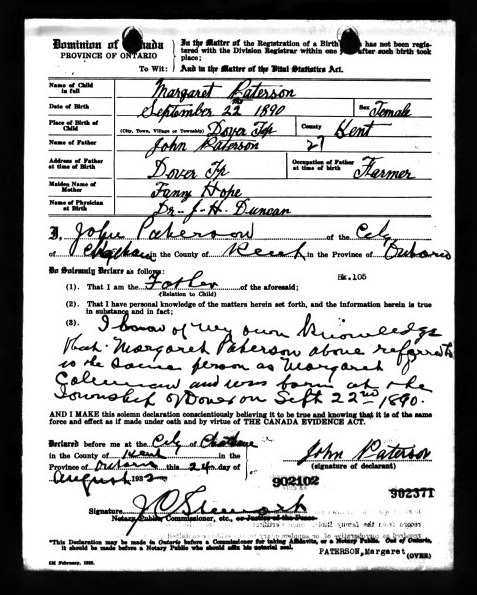 Dominion of Canada
PROVINCE OF ONTARIO
To Wit:
In the Matter of the Registration of a Birth has not been regis-
tered with the Division Registrar within one after such birth took
place;
And in the Matter of the Vital Statistics Act.
Name of Child in full Margaret Paterson
Date of Birth September 22nd 1890 Sex Female
Place of Birth of Child (City, Town, Village or Township) Dover Tp County Kent
Name of Father John Paterson 21
Address of Father at time of birth Dover Tp Occupation of Father at time of birth Farmer
Maiden Name of Mother Fanny Hope
Name of Physician at Birth Dr. J. H. Duncan
I, John Paterson of the City
of Chatham in the County of Kent in the Province of Ontario
Do Solemnly Declare as follows: Ex.105
(1). That I am the Father of the aforesaid;
(Relation to Child)
(2). That I have personal knowledge of the matters herein set forth, and the information herein is true
in substance and in fact;
(3). I know of my own Knowledge
that Margaret Paterson above referred to
is the same person as Margaret
Coleman and was born at the
Township of Dover on Sept 22nd 1890.
AND I MAKE this solemn declaration conscientiously believing it to be true and knowing that it is of the same
force and effect as if made under oath and by virtue of THE CANADA EVIDENCE ACT.
Declared before me at the City of Chatham
in the County of Kent
Province of Ontario this 24 day of
August 1932
John Paterson
(signature of declarant)
902102
902371
Signature
Notary Public, Commissioner, etc., or Justice of the Peace
*This Declaration may be made in Ontario before a Commissioner for taking Affidavits, or a Notary Public. Out of Ontario,
it should be made before a Notary Public who should affix his notarial seal.
PATERSON,Margaret
(OVER)